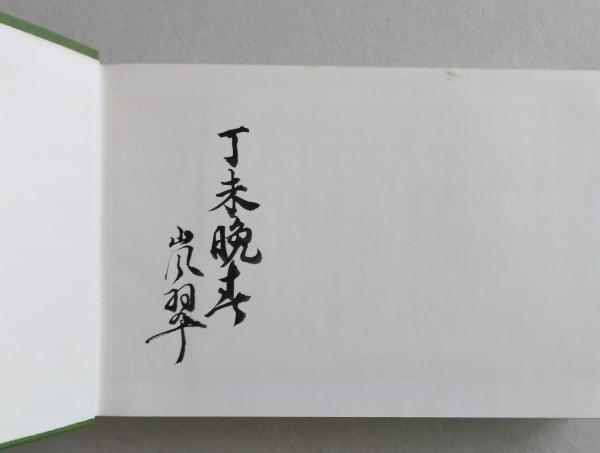 丁未晩春
嵐翠